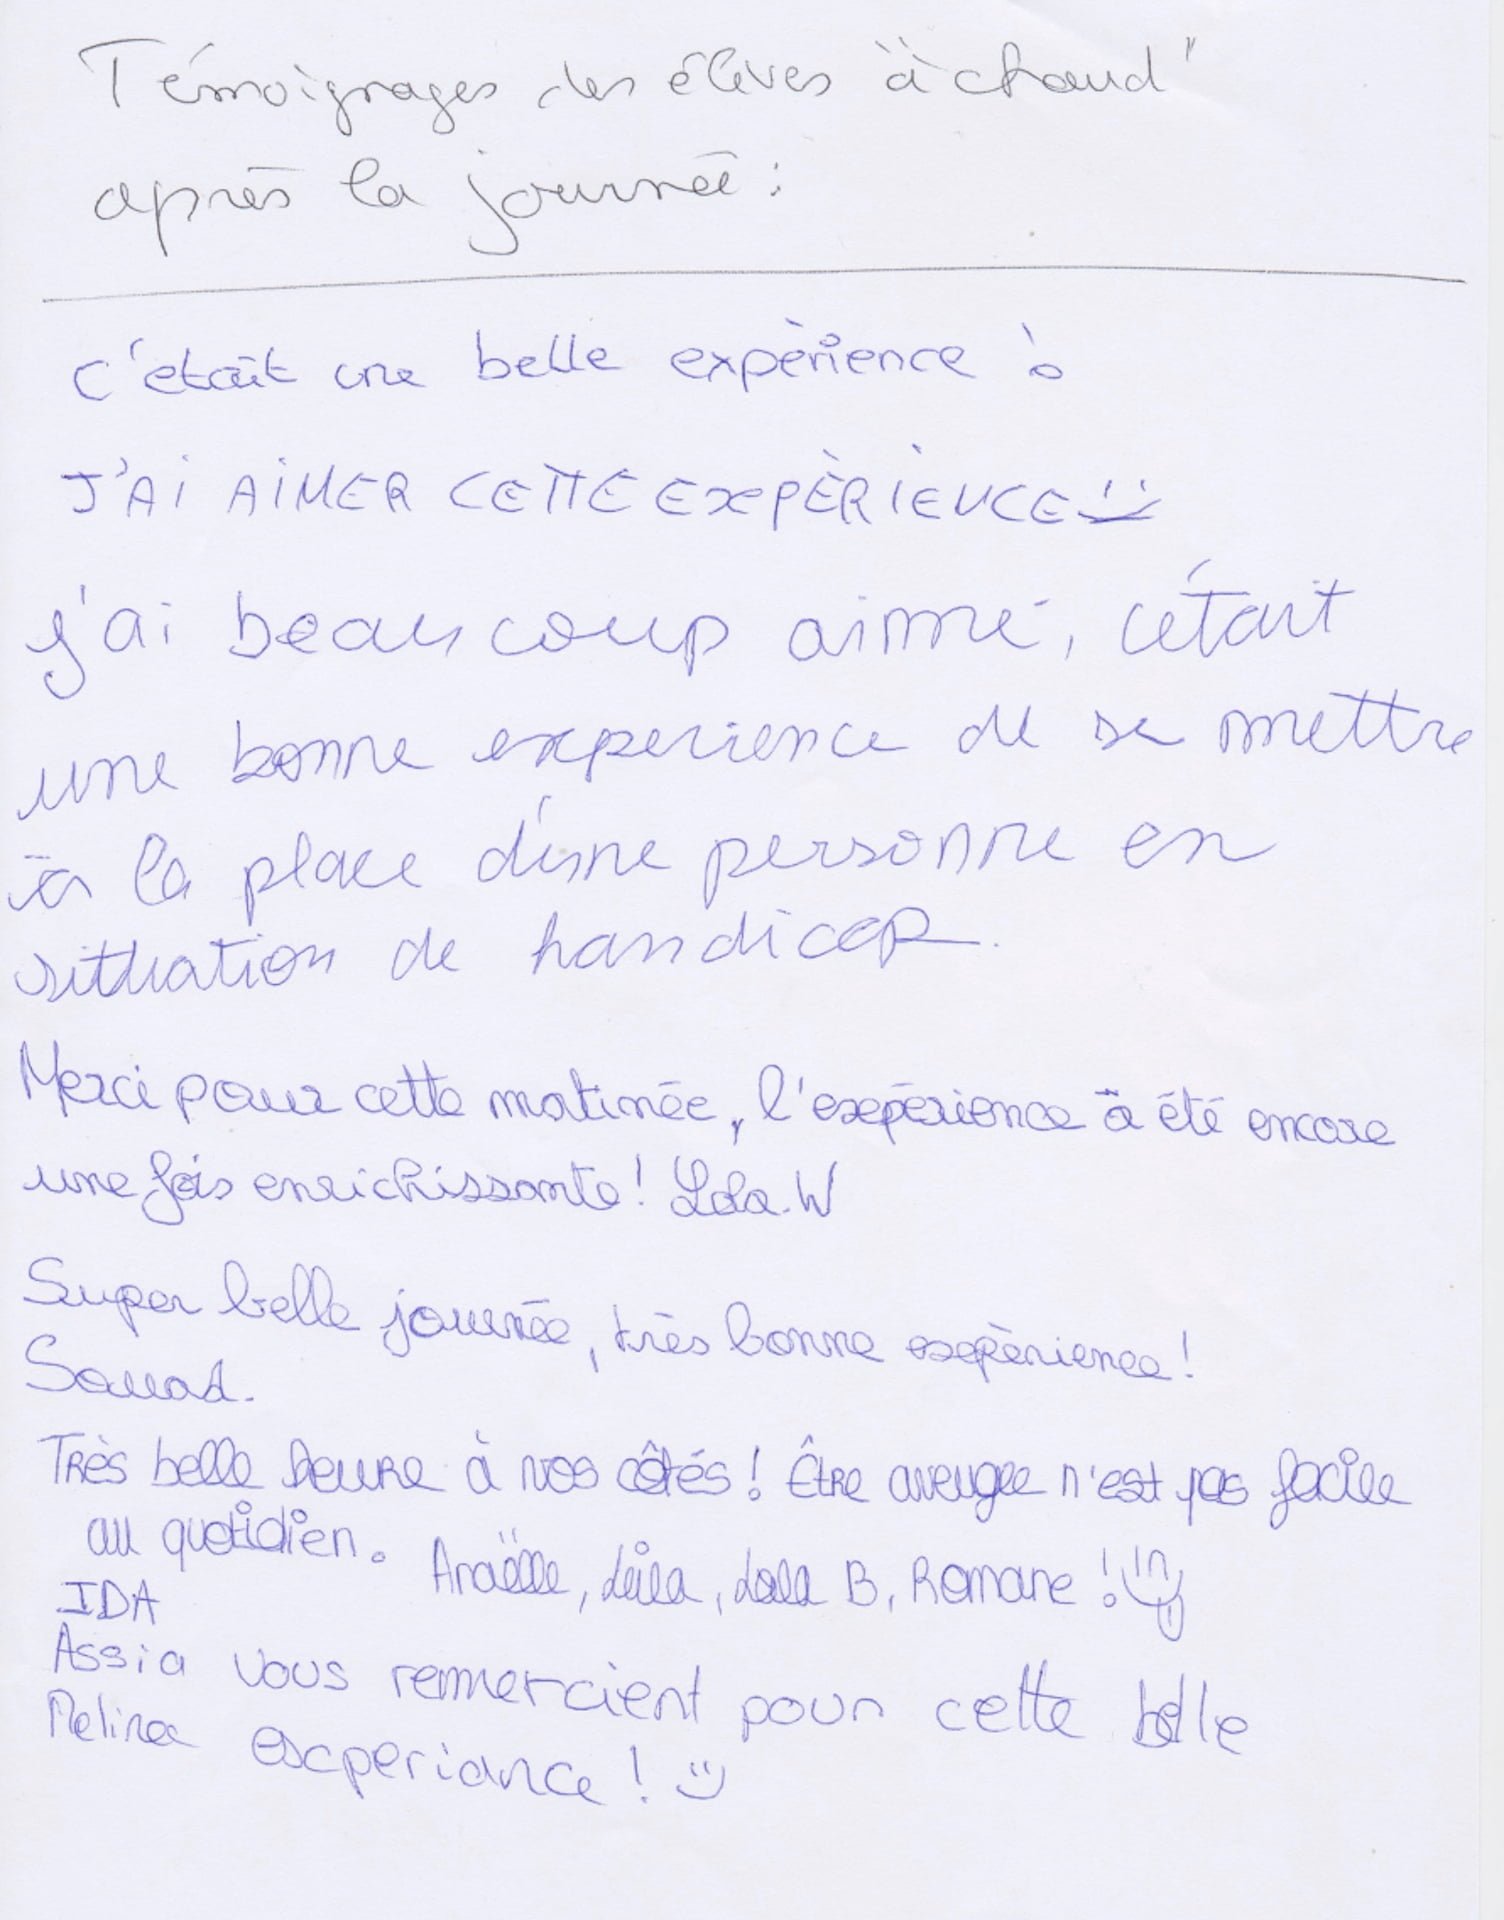 Témoignages des élèves "à chaud"
après la journée :
C'était une belle expèrience !
J'Ai AiMER CETTE EXPÈRiENCE
j'ai beaucoup aimé, c'était
une bonne experience de se mettre
à la place d'une personne en
situation de handicap.
Merci pour cette matinée, l'expérience a été encore
une fois enrichissante! Lola.W
Super belle journée, très bonne expèrience!
Souad.
Très belle heure à vos côtés! Être aveugle n'est pas facile
au quotidien. Anaëlle, Leïla, Lola B, Romane !
IDA
Assia vous remercient pour cette belle
Melina experiance ! :)